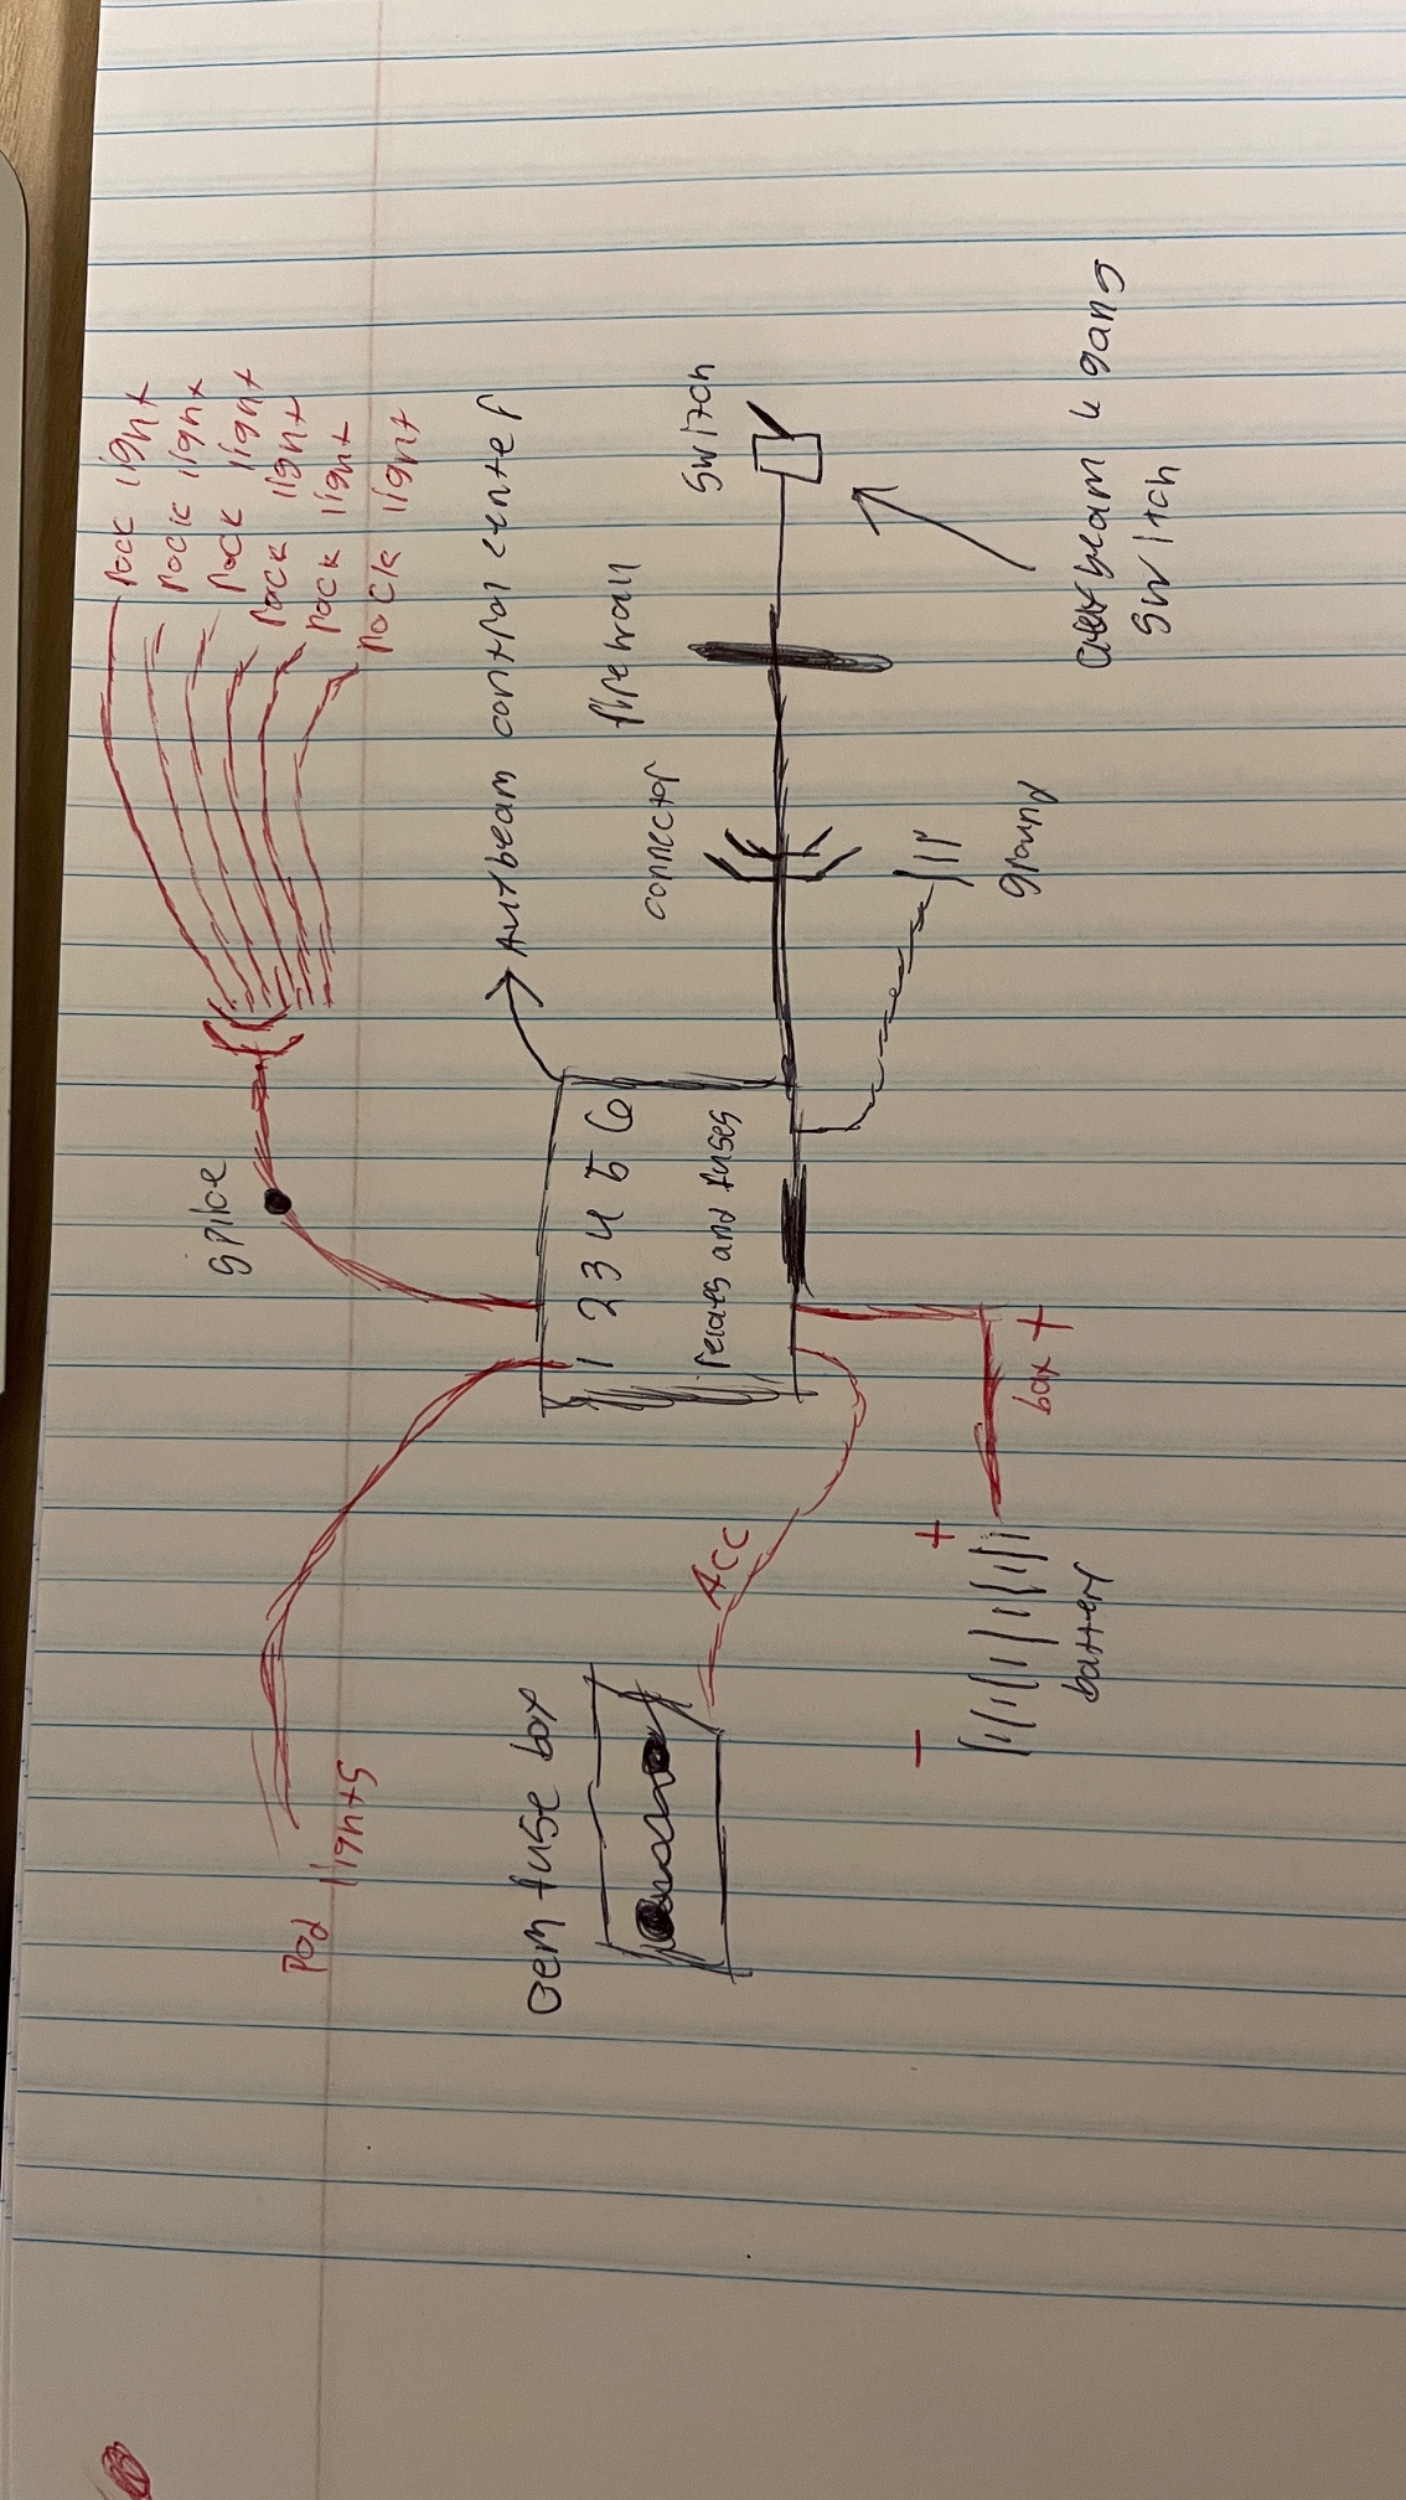 rock light
rock light
rock light
rock light
rock light
rock light
splice
Auxbeam control center
Pod lights
1 2 3 4 5 6
relays and fuses
connector
firewall
switch
oem fuse box
Acc
ground
+
-
box +
battery
Auxbeam 4 gang
switch